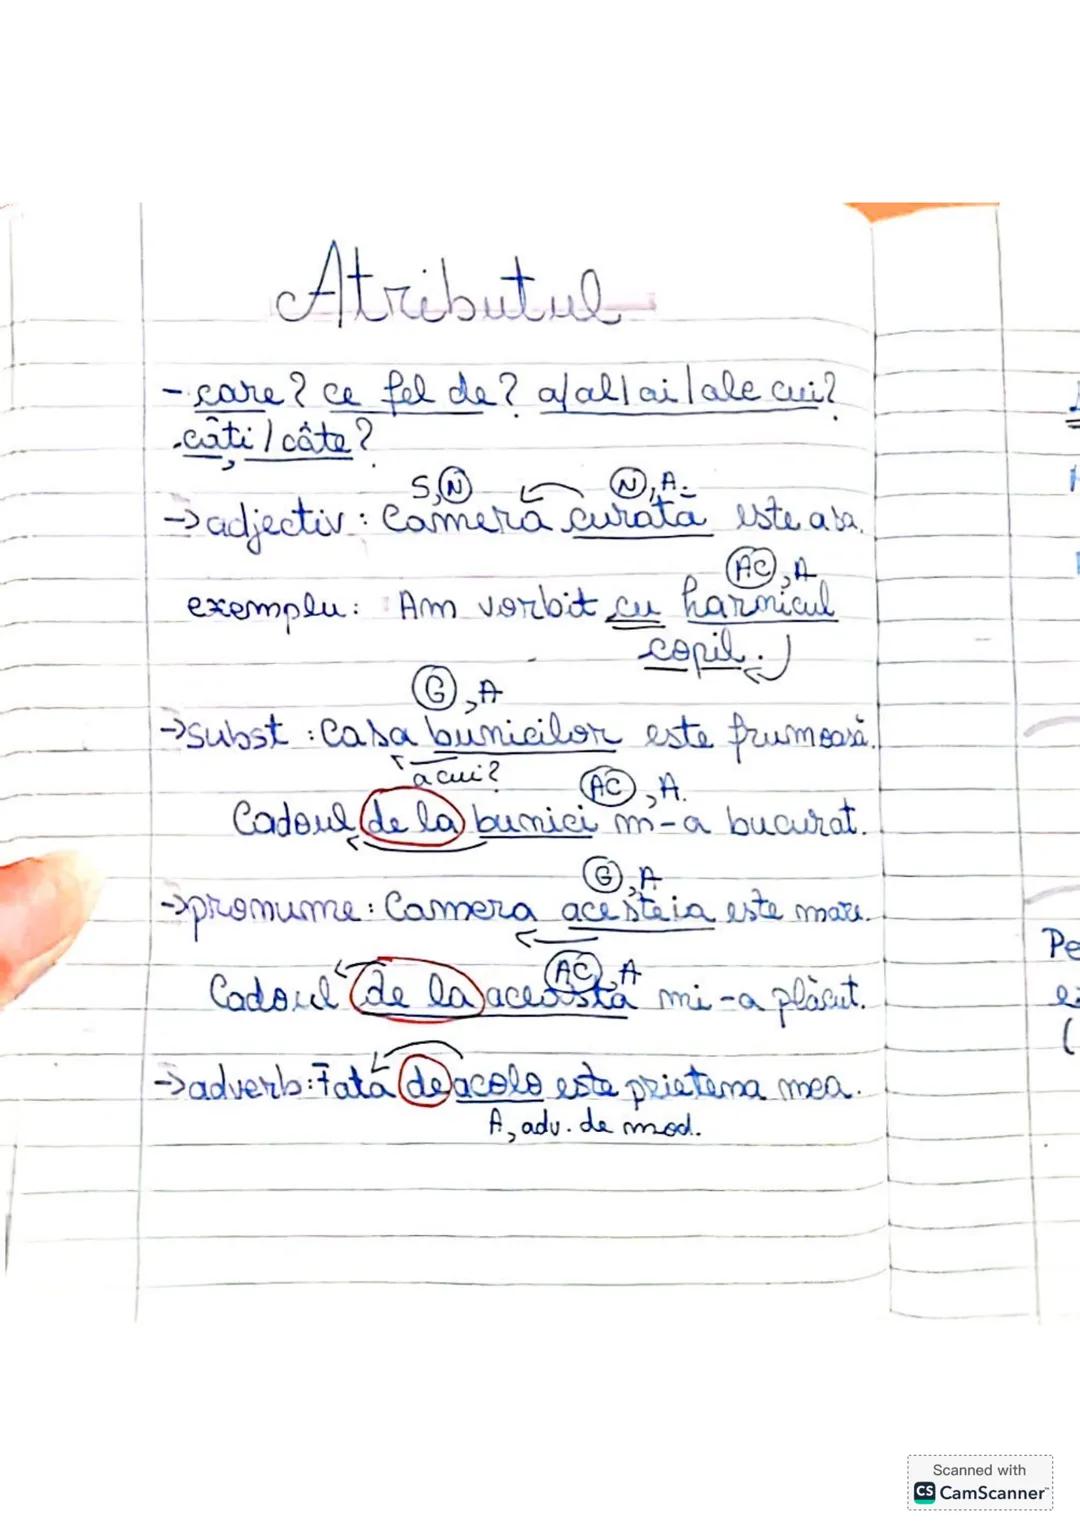 Atributul
- care? ce fel de? a/al/ai/ale cui?
câți / câte?
S, N N, A.
→ adjectiv: Camera curată este a sa.
AC, A
exemplu: Am vorbit cu harnicul
copil.
G, A
→ subst: Casa bunicilor este frumoasă.
a cui?
AC, A.
Cadoul de la bunici m-a bucurat.
G, A
→ pronume: Camera acesteia este mare.
AC, A
Cadoul de la aceasta mi-a plăcut.
→ adverb: Fata de acolo este prietena mea.
A, adv. de mod.
Pe
Scanned with
CS CamScanner